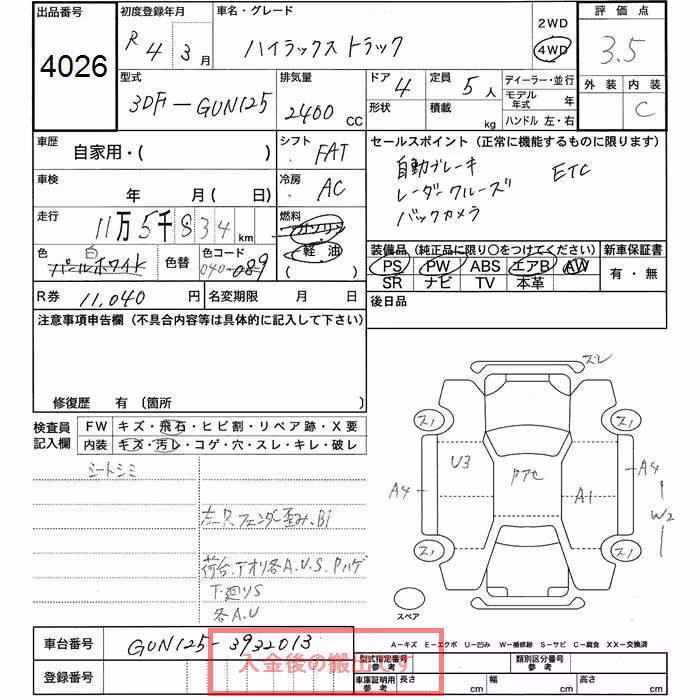 出品番号
4026
初度登録年月
R 4 3月
車名・グレード
ハイラックストラック
2WD
4WD
評価点
3.5
外装 内装
C
型式
3DF-GUN125
排気量
2400 CC
ドア 4
形状
定員 5人
積載 kg
ディーラー・並行
モデル年式 年
ハンドル 左・右
車歴
自家用・( )
シフト
FAT
セールスポイント (正常に機能するものに限ります)
自動ブレーキ
レーダークルーズ
バックカメラ
ETC
車検
年 月(日)
冷房
AC
走行
11万5千834 km
燃料
ガソリン
軽油
( )
色
白
パールホワイト
色替
色コード
040-089
装備品 (純正品に限り〇をつけてください)
新車保証書
PS PW ABS エアB AW
SR ナビ TV 本革
有・無
R券 11,040 円
名変期限 月 日
後日品
注意事項申告欄 (不具合内容等は具体的に記入して下さい)
修復歴 有 (箇所 )
検査員記入欄
FW キズ・飛石・ヒビ割・リペア跡・X要
内装 キズ・汚レ・コゲ・穴・スレ・キレ・破レ
シートシミ
フェンダー歪み、B1
荷台、アオリ各A.U.S.Pハゲ
下廻りS
各A.U
ズレ
スノ スノ
U3
アクセ
A4 A4
A1
W2
スノ スノ
スペア
A-キズ E-エクボ U-凹み W-補修跡 S-サビ C-腐食 XX-交換済
車台番号 GUN125-3932013
登録番号
入金後の搬出です
型式指定番号 参考
類別区分番号
車庫証明用 参考
長さ cm
幅 cm
高さ cm